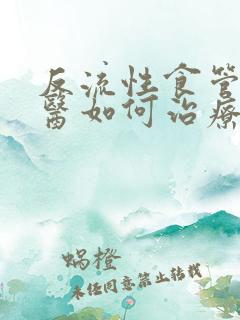 反流性食管
醫如何治療
蝸橙
未经同意禁止转载